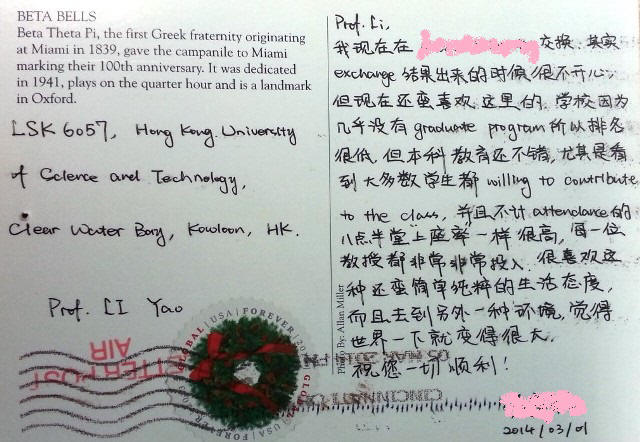 BETA BELLS
Beta Theta Pi, the first Greek fraternity originating
at Miami in 1839, gave the campanile to Miami
marking their 100th anniversary. It was dedicated
in 1941, plays on the quarter hour and is a landmark
in Oxford.
LSK 6057, Hong Kong University
of Science and Technology,
Clear Water Bay, Kowloon, HK.
Prof. LI Yao
GLOBAL USA FOREVER
Photo By: Allan Miller
Prof. Li,
我现在在 交换. 其实
exchange 结果出来的时候很不开心;
但现在还蛮喜欢这里的. 学校因为
几乎没有 graduate program 所以排名
很低, 但本科教育还不错, 尤其是看
到大多数学生都 willing to contribute
to the class, 并且不计 attendance 的
八点半堂上座率一样很高, 每一位
教授都非常非常投入. 很喜欢这
种还蛮简单纯粹的生活态度,
而且去到另外一种环境, 觉得
世界一下就变得很大.
祝您一切顺利!
2014/03/01